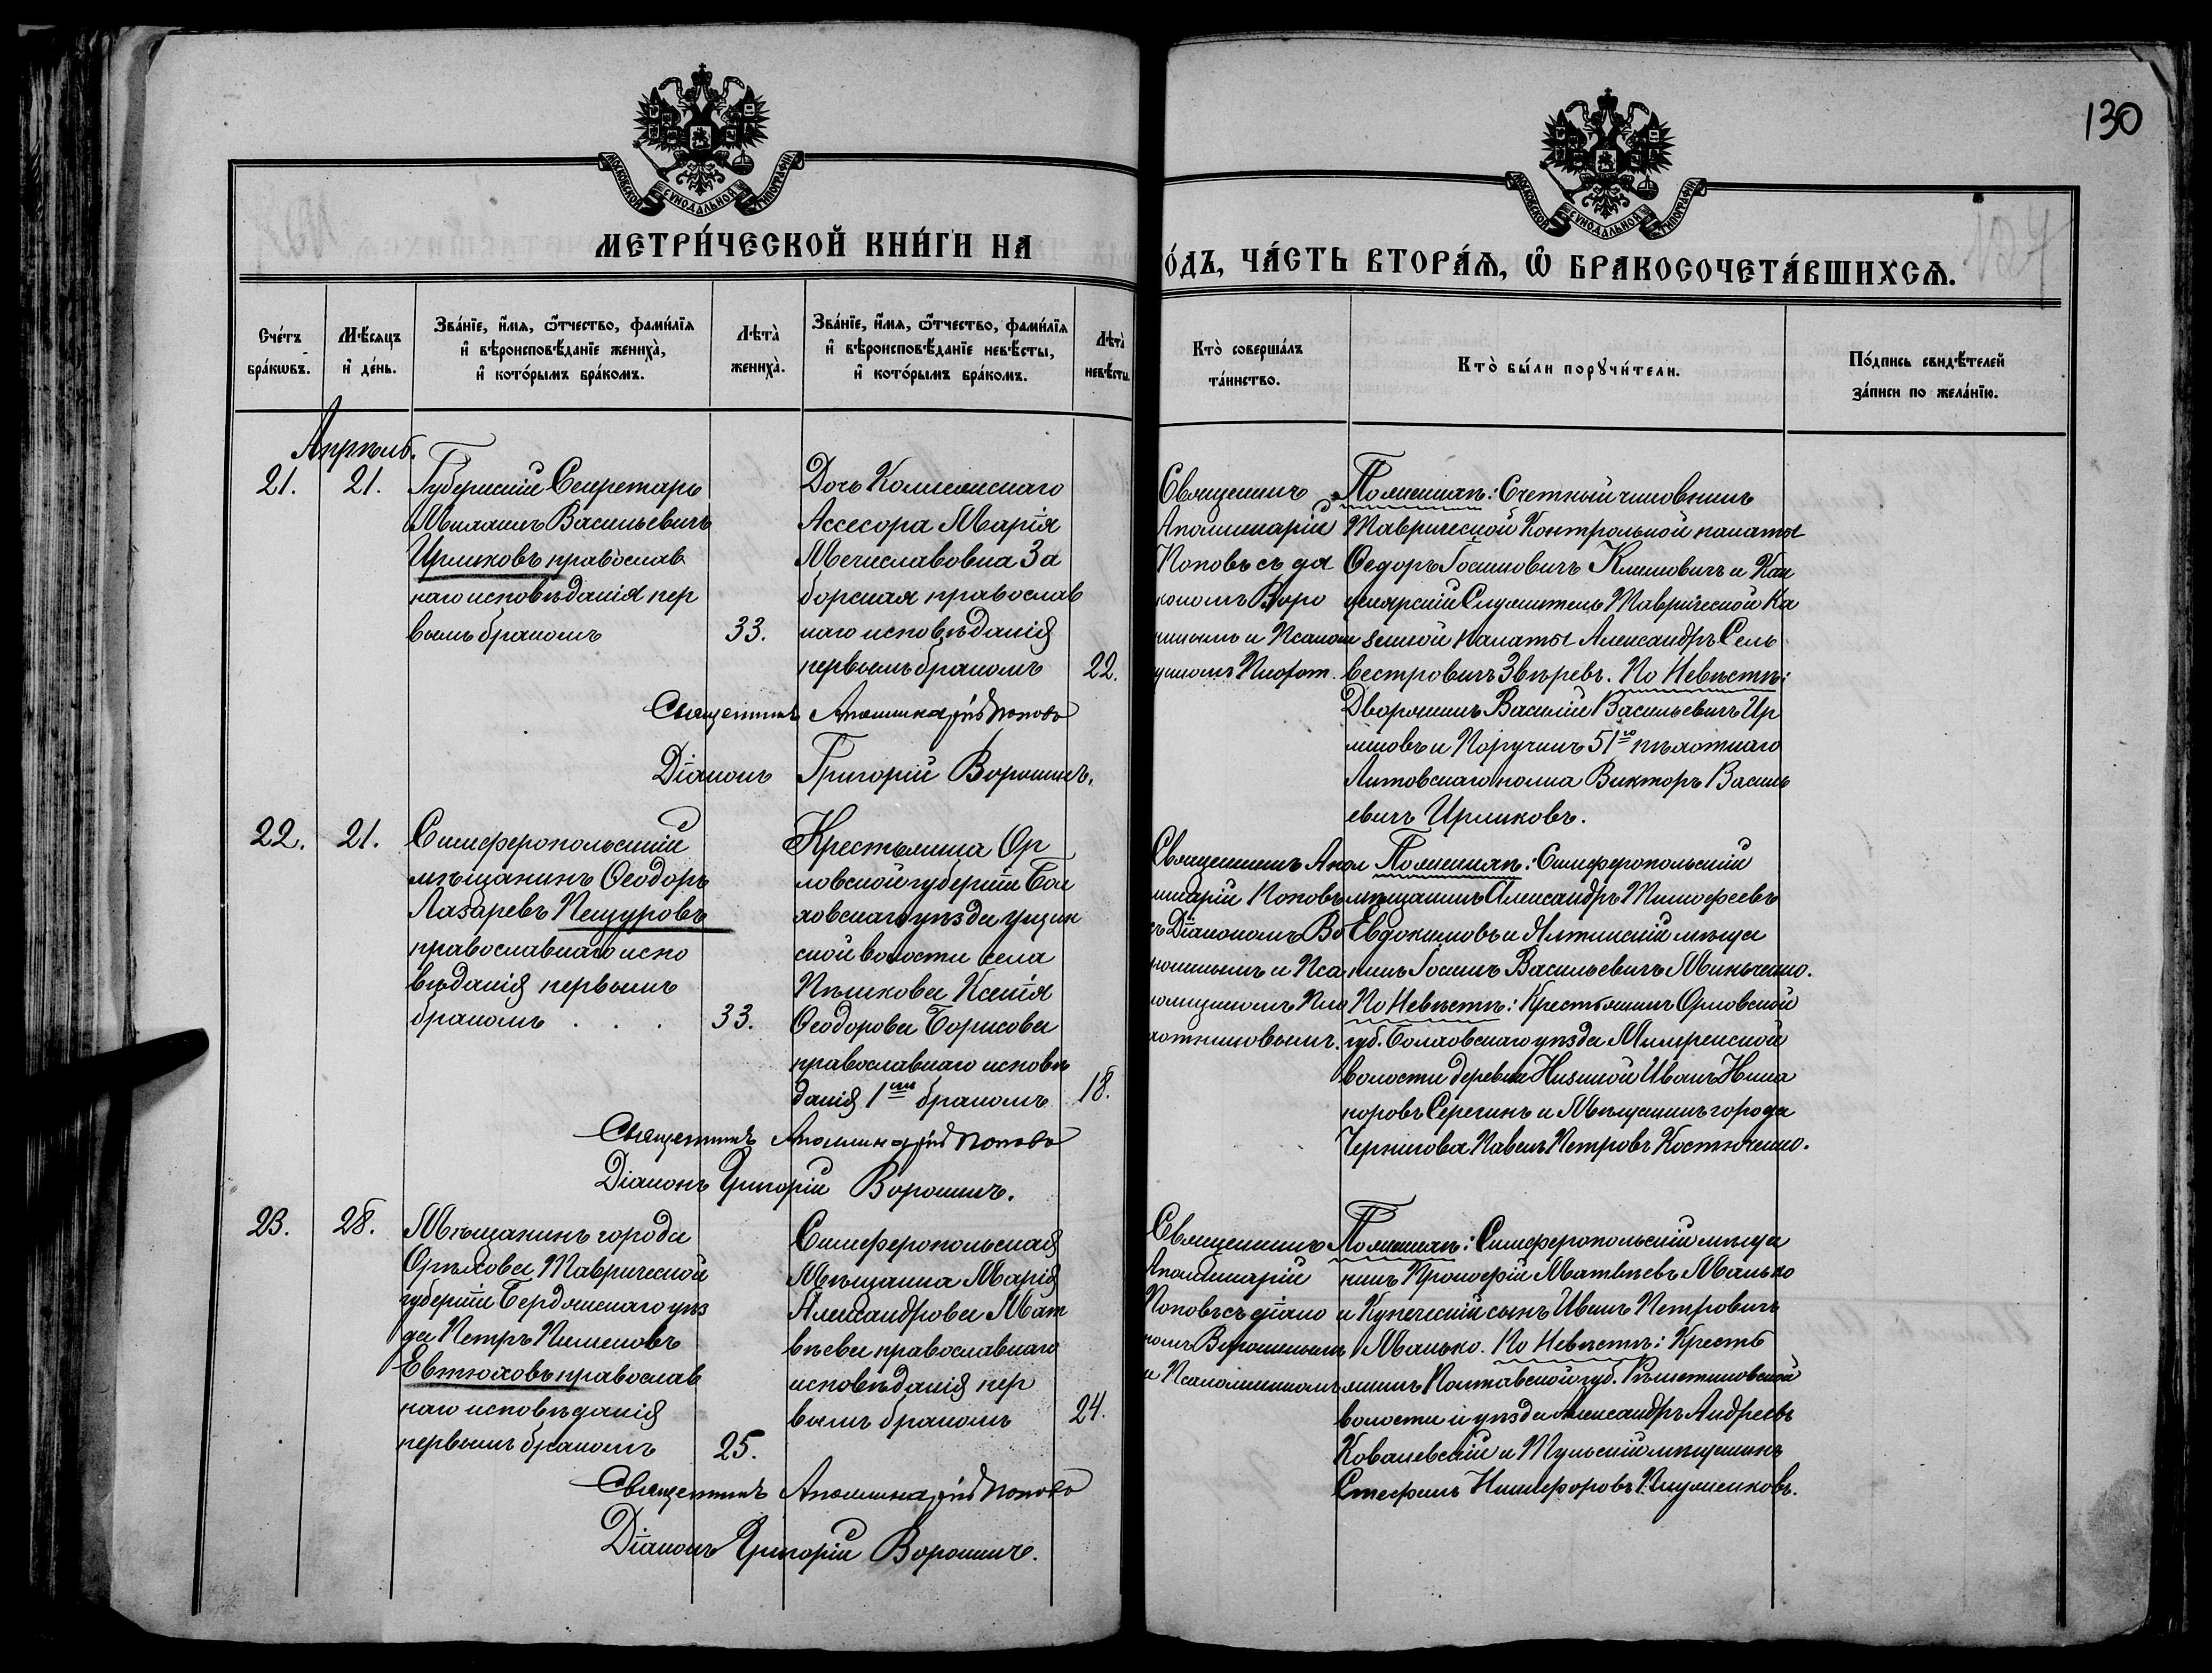 130
127
МОСКОВСКОЙ СѴНОДАЛЬНОЙ ТИПОГРАФІИ
МОСКОВСКОЙ СѴНОДАЛЬНОЙ ТИПОГРАФІИ
МЕТРИ́ЧЕСКОЙ КНИ́ГИ НА
О́ДЪ, ЧА́СТЬ ВТОРА́Ѧ, Ѽ БРАКОСОЧЕТА́ВШИХСѦ.
Сче́тъ
бра́кѡвъ.
Мѣ́сяцъ
и҆ де́нь.
Зва́нїе, и҆́мѧ, ѻ҆́тчество, фамн́лїя
и҆ вѣроисповѣ́данїе жениха̀,
и҆ кото́рымъ бра́комъ.
Лѣта̀
жениха̀.
Зва́нїе, и҆́мѧ, ѻ҆́тчество, фами́лїя
и҆ вѣроисповѣ́данїе невѣ́сты,
и҆ кото́рымъ бра́комъ.
Лѣта̀
невѣ́сты.
Кто̀ соверша́лъ
та́инство.
Кто̀ бы́ли порꙋчи́тели.
По́дпись свидѣ́телей
за́писи по жела́нїю.
Апрѣль.
21.
21.
Губернскій Секретарь
Михаилъ Васильевичъ
Ирликовъ православ
наго исповѣданія пер
вымъ бракомъ
33.
Дочь Коллежскаго
Ассесора Марія
Мечиславовна За
борская православ
наго исповѣданія
первымъ бракомъ
22.
Священникъ
Аполлинарій
Поповъ съ діа
кономъ Воро
нинымъ и Псалом
щикомъ Плохот.
По женихѣ: Счетный чиновникъ
Таврической Контрольной палаты
Ѳедоръ Іосифовичъ Климовичъ и Кан
целярскій Служитель Таврической Ка
зенной палаты Александръ Сель
вестровичъ Звѣревъ. По Невѣстѣ:
Дворянинъ Василій Васильевичъ Ир
ликовъ и Поручикъ 51го пѣхотнаго
Литовскаго полка Викторъ Василь
евичъ Ирликовъ.
Священникъ Аполлинарій Поповъ
Діаконъ Григорій Воронинъ.
22.
21.
Симферопольскій
мѣщанинъ Ѳеодоръ
Лазаревъ Пещуровъ
православнаго испо
вѣданія первымъ
бракомъ . . .
33.
Крестьянка Ор
ловской губерніи Бол
ховскаго уѣзда
ской волости села
Пѣшкова Ксенія
Ѳеодорова Борисова
православнаго исповѣ
данія 1мъ бракомъ
18.
Священникъ Апол
линарій Поповъ
съ Діакономъ Во
рониным и Пса
ломщикомъ Пло
хотниковымъ.
По женихѣ: Симферопольскій
мѣщанинъ Александръ Тимофеевъ
Евдокимовъ и Ялтинскій мѣща
нинъ Іосифъ Васильевичъ Минченко.
По Невѣстѣ: Крестьянинъ Орловской
губ. Болховскаго уѣзда
волости деревни Низкой Иванъ Ника
норовъ Серегинъ и Мѣщанинъ города
Чернигова Павелъ Петровъ Костюченко.
Священникъ Аполлинарій Поповъ
Діаконъ Григорій Воронинъ.
23.
28.
Мѣщанинъ города
Орѣхова Таврической
губерніи Бердянскаго уѣз
да Петръ Пименовъ
Евтюховъ православ
наго исповѣданія
первымъ бракомъ
25.
Симферопольская
Мѣщанка Марія
Александрова Мат
вѣева православнаго
исповѣданія пер
вымъ бракомъ
24.
Священникъ
Аполлинарій
Поповъ съ діако
номъ Воронинымъ
и Псаломщикомъ
По женихѣ: Симферопольскій мѣща
нинъ Прокофій Матвѣевъ Манько
и Купеческій сынъ Иванъ Петровичъ
Манько. По Невѣстѣ: Кресть
янинъ Полтавской губ. Рѣшетиловской
волости и уѣзда Александръ Андреевъ
Ковалевскій и Тульскій мѣщанинъ
Стефанъ Никифоровъ
Священникъ Аполлинарій Поповъ
Діаконъ Григорій Воронинъ.